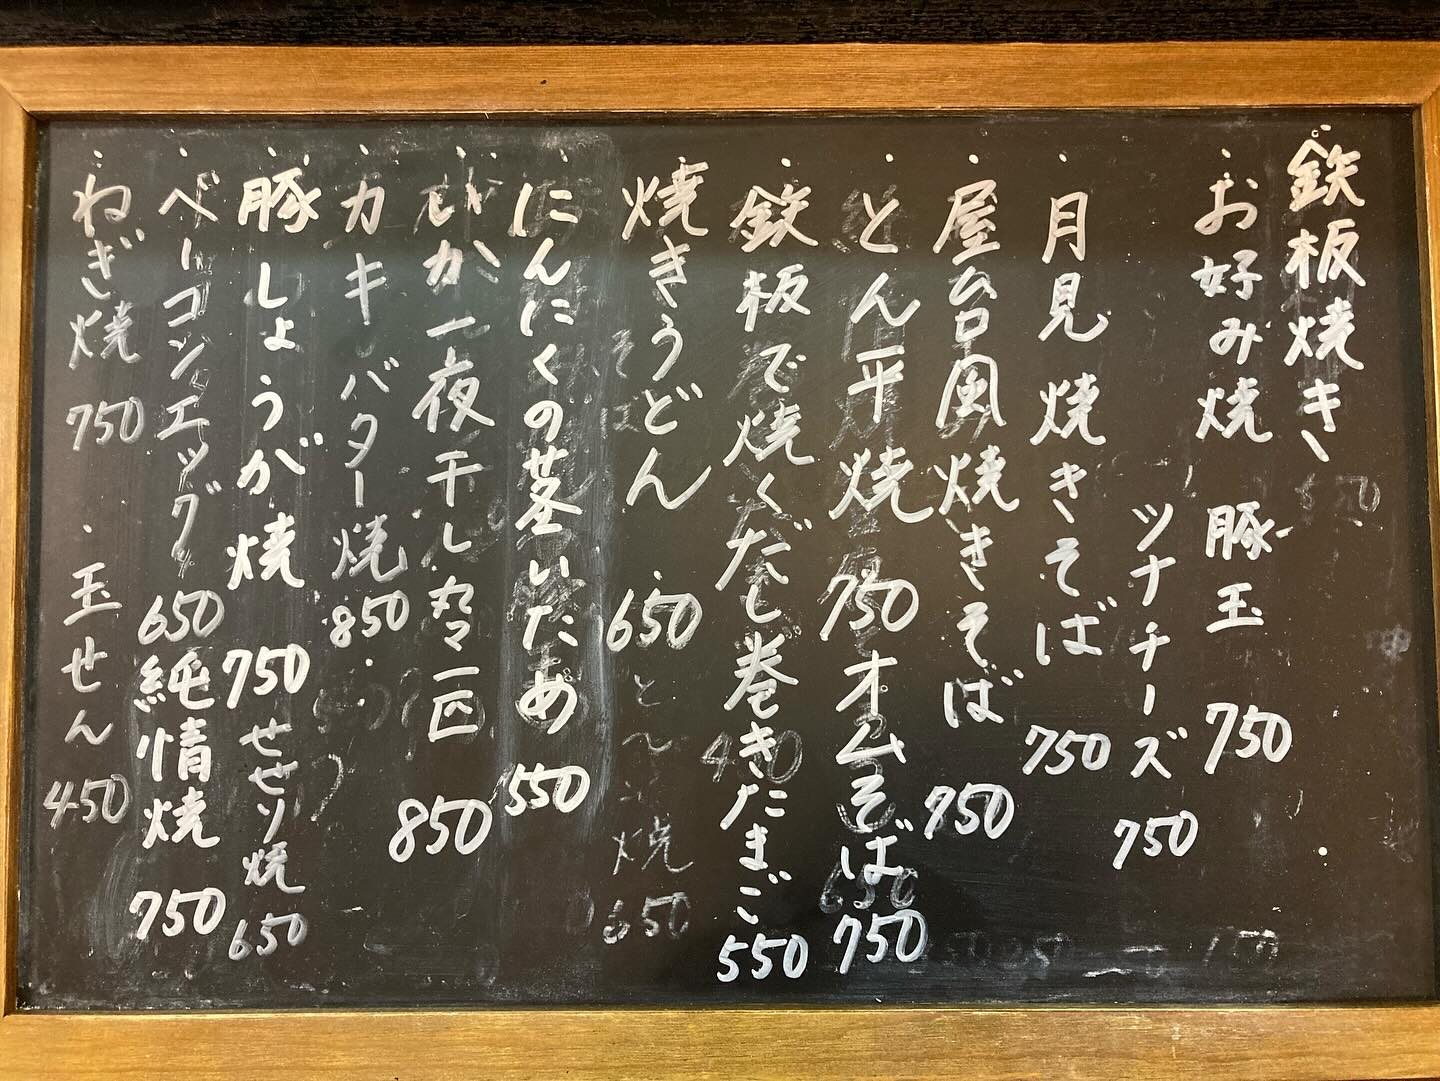 鉄板焼き
・お好み焼 豚玉 750
ツナチーズ 750
・月見焼きそば 750
・屋台風焼きそば 750
・とん平焼 750
オムそば 750
・鉄板で焼くだし巻きたまご 550
・焼きうどん 650
・にんにくの茎いため 550
・いか一夜干し丸々一匹 850
・カキバター焼 850
・豚しょうが焼 750
せせり焼 650
・ベーコンエッグ 650
純情焼 750
・ねぎ焼 750
・玉せん 450